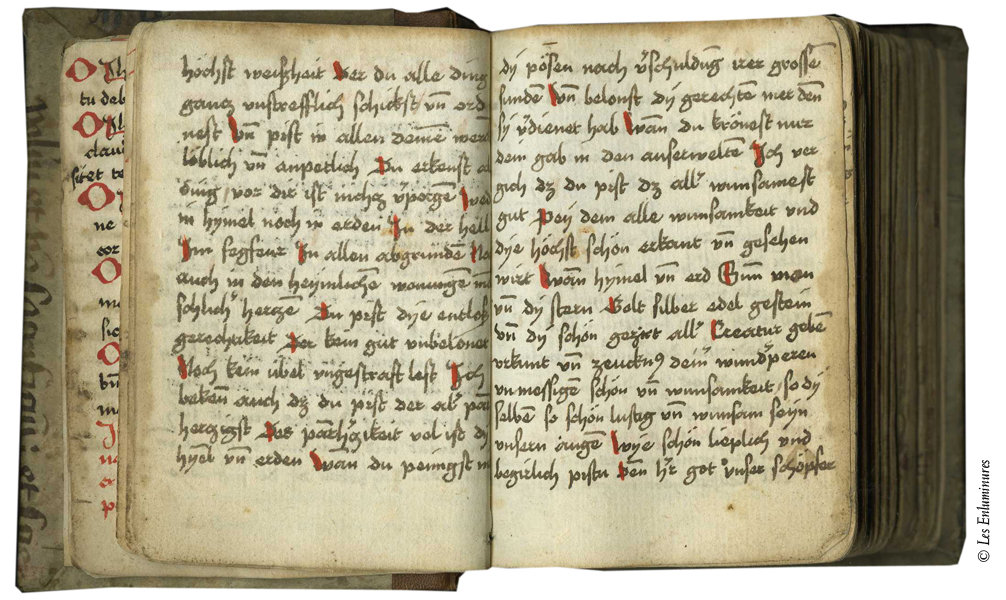 höchst weißheit Der du alle ding
gancz vnstrefflich schickst vn̄ ord
nest Vn̄ pist in allen deinē werck
löblich vn̄ anpetlich Du erkenst al
ding, vor dir ist nichcz v̓porgē Wed
in hymel noch in erden In der hell
Im fegfeur In allen abgründē No
auch in den heymlichē wonungen
schlichr̓ herczē Du pist dye entlos
gerechtikeit Der kein güt vnbelonet
Noch kein übel vngestraft lest Ich
bekēn auch dz du pist der alr̓ parm
herczigst Des parmh̓czikeit vol ist dy
hyel vn̄ erden Wan du peinigst
dy pösen nach v̓schuldūg irer grossē
sunden Vn̄ belonst dy gerechten mer dēn
sy v̓dienet hab Wan du krönest nur
dein gab in den auserwelte Ich ver
gich dz du pist dz allr̓ wunsamest
gut Pey dem alle wunsamkeit vnd
dye höchst schön erkant vn̄ gesehen
wirt Wan hymel vn̄ erd Sunn mon
vn̄ dy stern Golt silber edel gestein
vn̄ dy schön geziert allr̓ Creatur gebē
vrkunt vn̄ zeucknus deinr̓ wundp̄eren
vnmessigē schön vn̄ wunsamkeit, so dy
selbē so schön lustig vn̄ wunsam seyn
vnsern augē Wye schön lieplich vnd
begirlich pistu dēn hr̓ got vnser schöpfer
© Les Enluminures